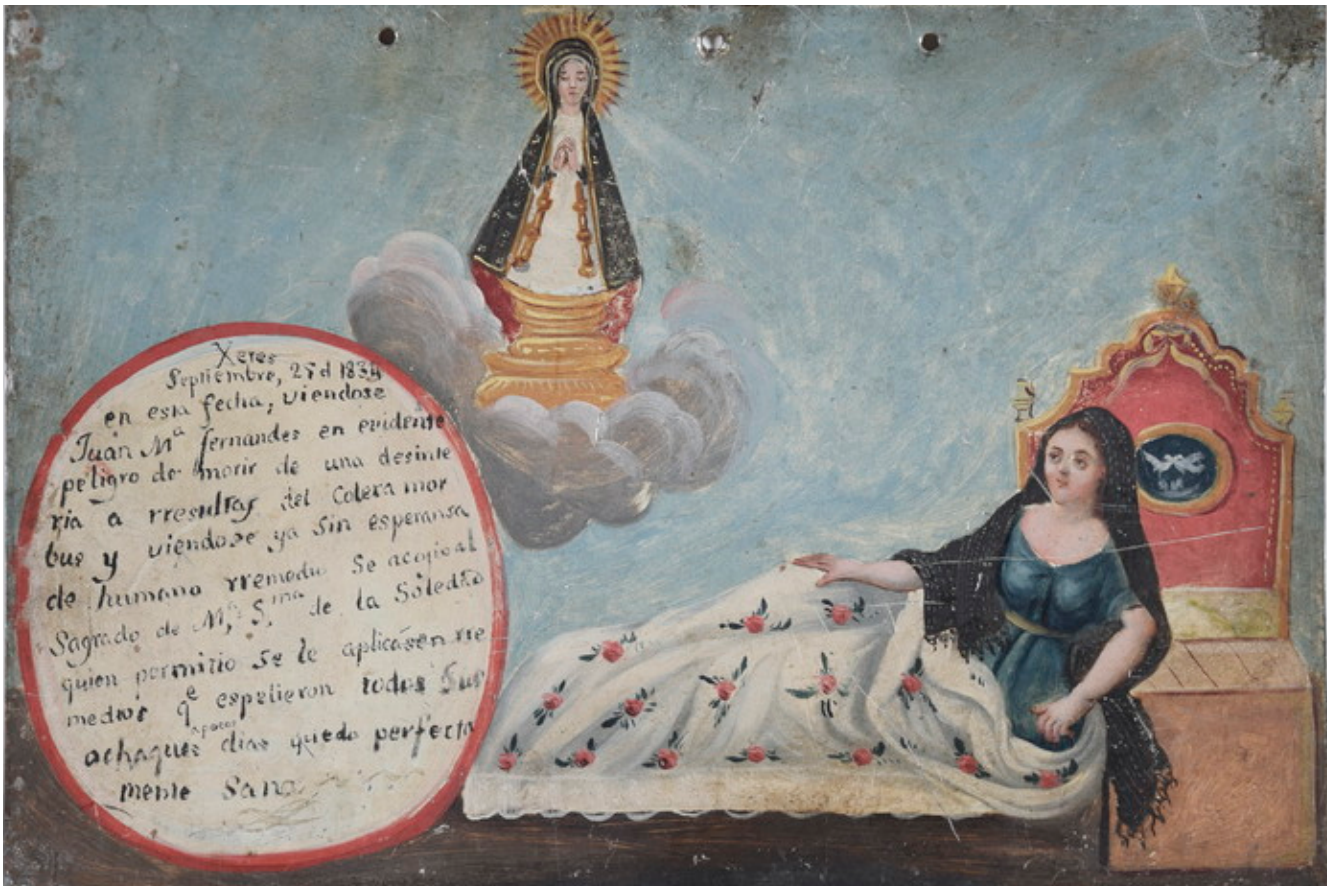 Xeres
Septiembre, 25 d 1834
en esta fecha, viendose
Juan Mª fernandes en evidente
peligro de morir de una desinte
ria a rresultas del Colera mor
bus y viendose ya sin esperansa
de humano rremedio Se acojio al
Sagrado de Mª, S.ma de la Soledad
quien permitio se le aplicasen rre
medios qe espelieron todos Sus
achaques y a pocos dias quedo perfecta
mente Sana